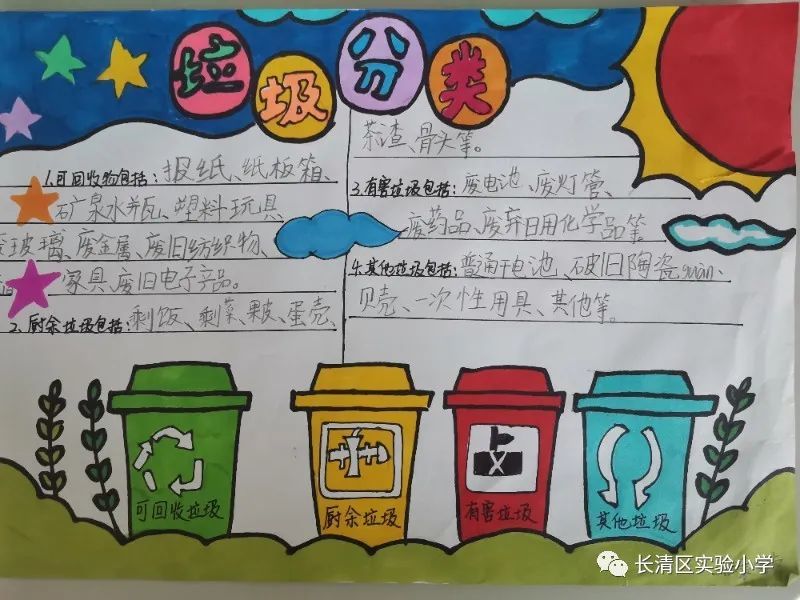 垃圾分类
1.可回收物包括：报纸、纸板箱、
矿泉水并瓦、塑料玩具、
玻璃、废金属、废旧纺织物、
家具、废旧电子产品。
2.厨余垃圾包括：剩饭、剩菜、果皮、蛋壳、
茶渣、骨头等。
3.有害垃圾包括：废电池、废灯管、
废药品、废弃日用化学品等。
4.其他垃圾包括：普通干电池、破旧陶瓷
贝壳、一次性用具、其他等。
可回收垃圾
厨余垃圾
有害垃圾
其他垃圾
长清区实验小学